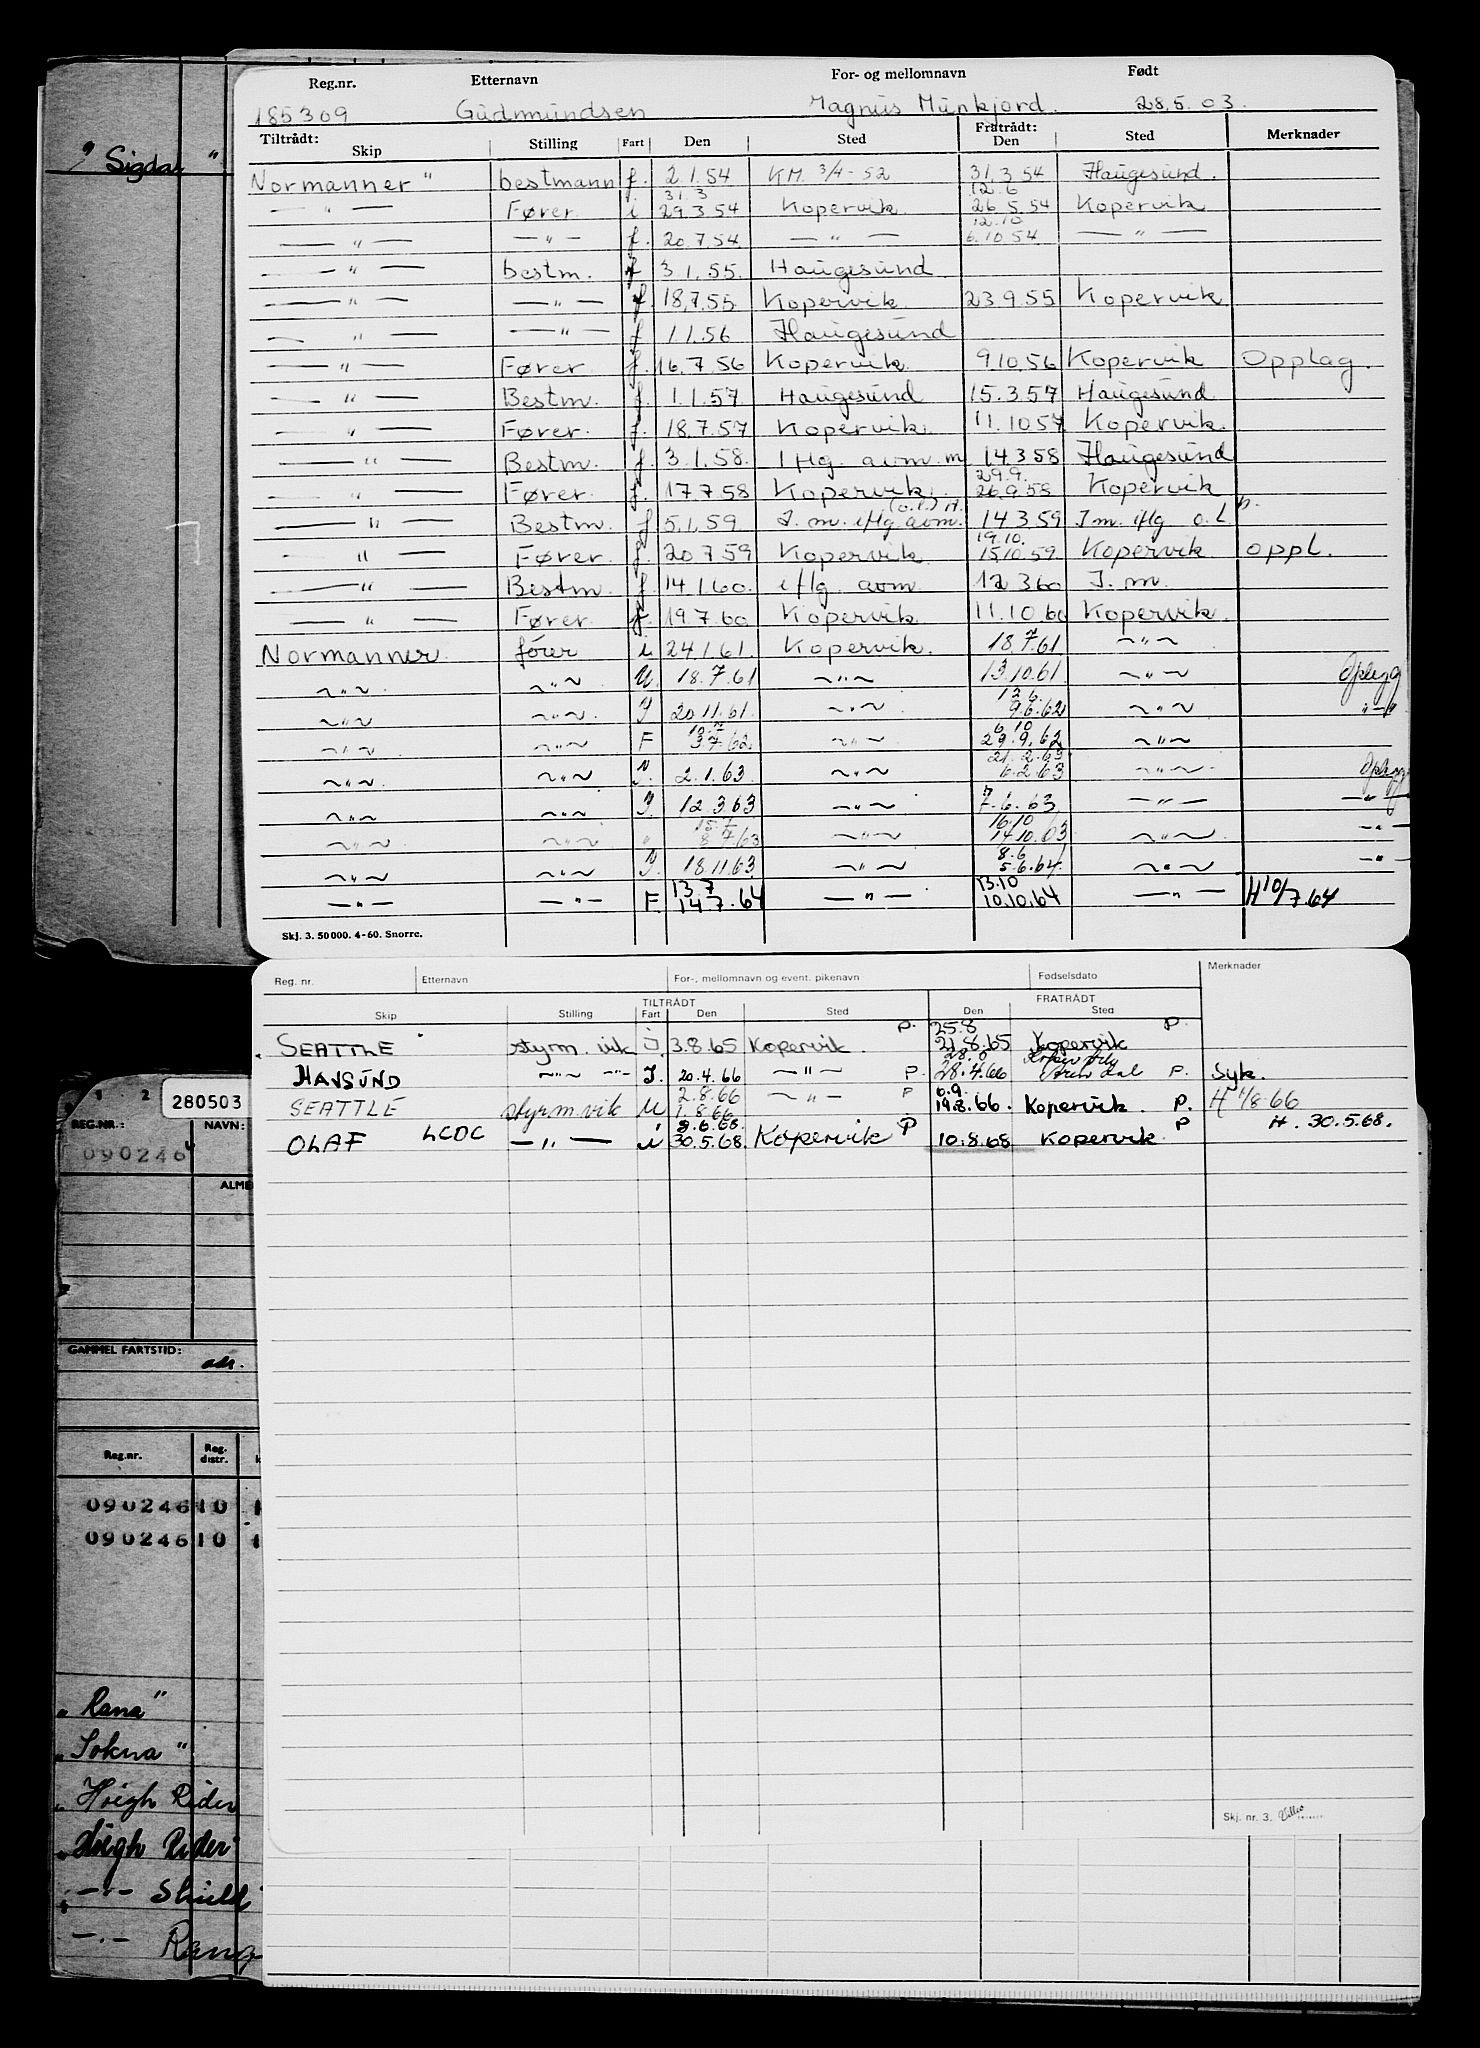 " Sigdal "
Reg.nr. Etternavn For- og mellomnavn Født
185309 Gudmundsen Magnus Munkjord. 28.5.03.
Tiltrådt: Fratrådt:
Skip Stilling Fart Den Sted Den Sted Merknader
Normanner " bestmann f. 2.1.54 KM. 3/4-52 31.3.54 Haugesund.
31.3 12.6
— " — Fører i 29.3.54 Kopervik 26.5.54 Kopervik
12.10
— " — — " — f. 20.7.54 — " — 6.10.54 — " —
— " — bestm. f 3.1.55. Haugesund
— " — — " — f. 18.7.55 Kopervik 23.9.55 Kopervik
— " — — " — f 1.1.56 Haugesund
— " — Fører f. 16.7.56 Kopervik 9.10.56 Kopervik Opplag.
— " — Bestm. f. 1.1.57. Haugesund 15.3.57 Haugesund
— " — Fører. f. 18.7.57 Kopervik. 11.10.57 Kopervik.
— " — Bestm. f. 3.1.58. Iflg. avm. m 14.3.58 Haugesund
29.9.
— " — Fører. f. 17.7.58 Kopervik. 26.9.58 Kopervik
— " — Bestm. f. 5.1.59 I. m. iflg avm. 14.3.59 I m. iflg o.L
19.10.
— " — Fører. f. 20.7.59 Kopervik 15.10.59 Kopervik oppl.
— " — Bestm f. 14.1.60. iflg. avm 12.3.60 I. m.
— " — Fører f. 19.7.60 Kopervik 11.10.60 Kopervik.
Normanner. fører i 24.1.61. Kopervik. 18.7.61 ~"~
~"~ ~"~ U. 18.7.61 ~"~ 13.10.61. ~"~ Oplegg
12.6.
~"~ ~"~ I 20.11.61. ~"~ 9.6.62 ~"~ "-"
10.7 6.10
~"~ ~"~ F 3.7.62. ~"~ 29.9.62 ~"~
21.2.63
~"~ ~"~ I. 2.1.63. ~"~ 6.2.63 ~"~ Oplegg
~"~ ~"~ I. 12.3.63 ~"~ 7.6.63 —"— —"—
15.7 16.10
~"~ ~"~ " 8.7.63 ~"~ 14.10.63 ~"~ -"-
8.6
~"~ ~"~ I. 18.11.63 ~"~ 5.6.64. ~"~ -"-
13.7 13.10
—"— —"— F. 14.7.64 —"— 10.10.64 —"— H10/7.64
Skj. 3. 50 000. 4-60. Snorre.
Reg. nr. Etternavn For-, mellomnavn og event. pikenavn Fødselsdato Merknader
TILTRÅDT FRATRÅDT
Skip Stilling Fart Den Sted Den Sted
P. 25.8 P.
SEATTLE styrm. vik I. 3.8.65 Kopervik. 21.8.65 Kopervik
28.6
HAVSUND ~"~ -"- I. 20.4.66 —"— P. 28.4.66 Arendal P. Syk.
2.8.66 P 10.9.
SEATTLE styrm.vik U 1.8.66 —"— 19.8.66. Kopervik. P. H 1/8.66
8.6.68. P P H. 30.5.68.
OLAF LCDC —"— i 30.5.68. Kopervik 10.8.68 Kopervik
Skj. nr. 3.
1 2 280503
REG.NR.: NAVN:
0902464
ALME
GAMMEL FARTSTID:
adr.
Reg.nr. Reg. distr. k
0902461 0
0902461 0
" Rana "
" Sokna "
" Høegh Rider
" Høegh Rider "
" —"— Shield
—"— Rana